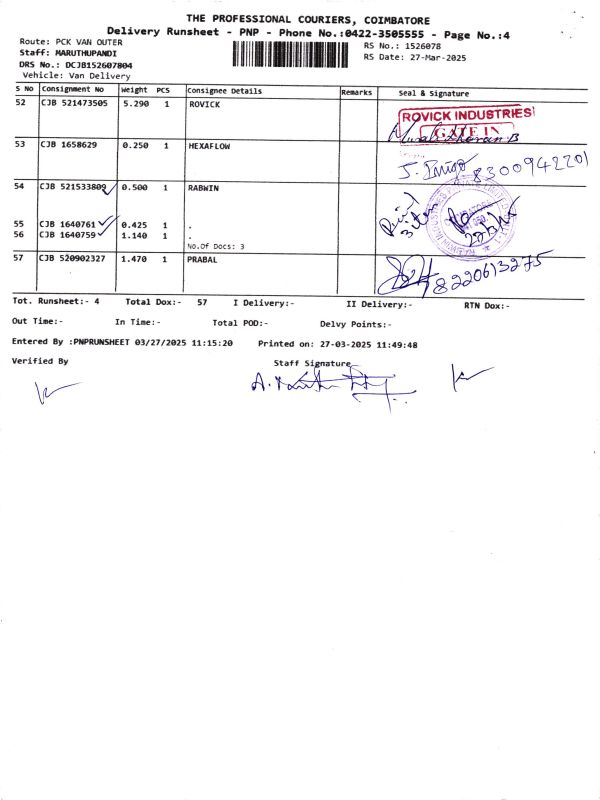 THE PROFESSIONAL COURIERS, COIMBATORE
Delivery Runsheet - PNP - Phone No.:0422-3505555 - Page No.:4
Route: PCK VAN OUTER
Staff: MARUTHUPANDI
DRS No.: DCJB152607804
Vehicle: Van Delivery
RS No.: 1526078
RS Date: 27-Mar-2025
S No Consignment No Weight PCS Consignee Details Remarks Seal & Signature
52 CJB 521473505 5.290 1 ROVICK
ROVICK INDUSTRIES
GATE IN
53 CJB 1658629 0.250 1 HEXAFLOW
8300942201
54 CJB 521533809 0.500 1 RABWIN
55 CJB 1640761 0.425 1 .
56 CJB 1640759 1.140 1 .
No.Of Docs: 3
57 CJB 520902327 1.470 1 PRABAL
8220613275
Tot. Runsheet:- 4 Total Dox:- 57 I Delivery:- II Delivery:- RTN Dox:-
Out Time:- In Time:- Total POD:- Delvy Points:-
Entered By :PNPRUNSHEET 03/27/2025 11:15:20 Printed on: 27-03-2025 11:49:48
Verified By Staff Signature